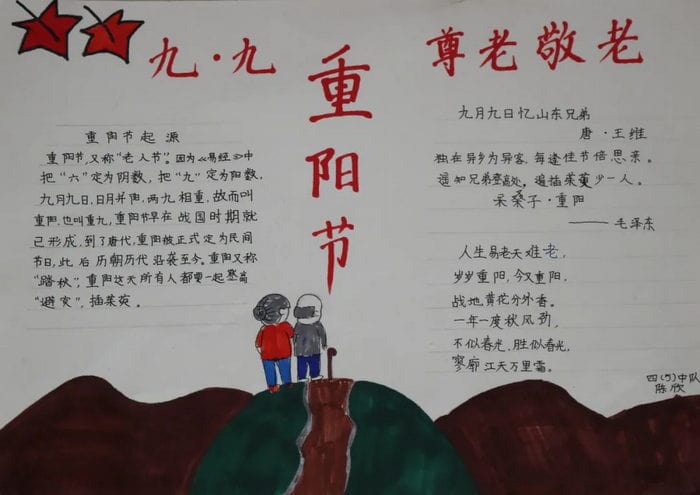 九·九
重阳节
尊老敬老
重阳节起源
重阳节,又称“老人节”,因为《易经》中
把“六”定为阴数,把“九”定为阳数,
九月九日,日月并阳,两九相重,故而叫
重阳,也叫重九,重阳节早在战国时期就
已形成,到了唐代,重阳被正式定为民间
节日,此后历朝历代沿袭至今。重阳又称
“踏秋”,重阳这天所有人都要一起登高
“避灾”,插茱萸。
九月九日忆山东兄弟
唐·王维
独在异乡为异客,每逢佳节倍思亲。
遥知兄弟登高处,遍插茱萸少一人。
采桑子·重阳
——毛泽东
人生易老天难老,
岁岁重阳,今又重阳,
战地黄花分外香。
一年一度秋风劲,
不似春光,胜似春光,
寥廓江天万里霜。
四(5)中队
陈欣